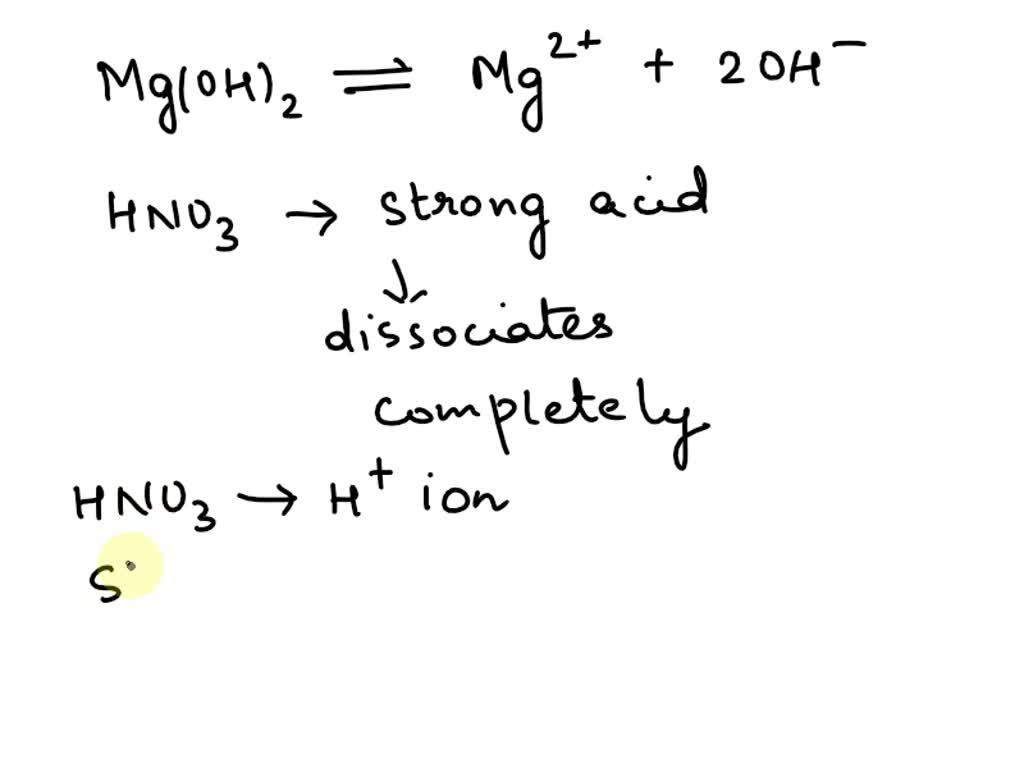 Mg(OH)₂ ⇌ Mg²⁺ + 2OH⁻
HNO₃ → strong acid
↓
dissociates
completely
HNO₃ → H⁺ ion
S